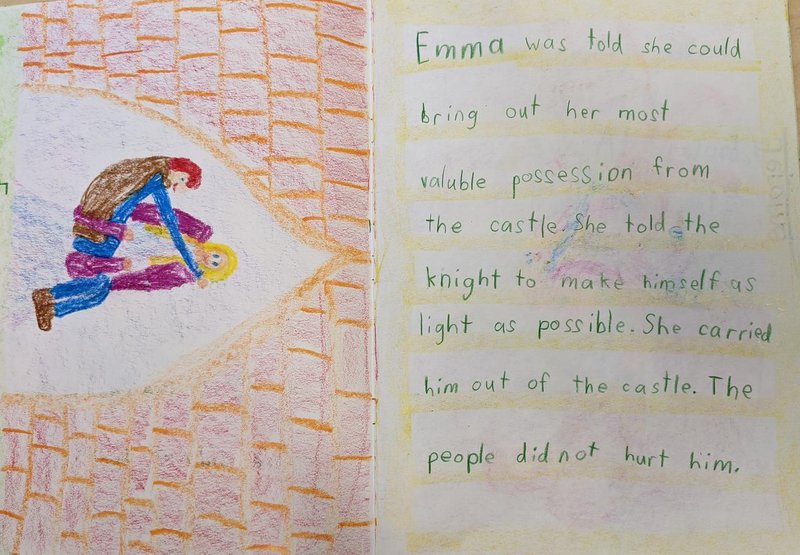 Emma was told she could
bring out her most
valuble possession from
the castle. She told the
knight to make himself as
light as possible. She carried
him out of the castle. The
people did not hurt him.